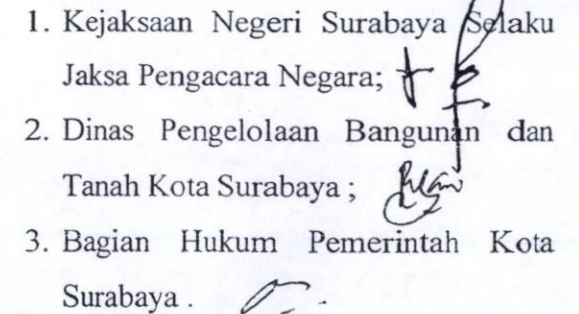 1. Kejaksaan Negeri Surabaya Selaku
Jaksa Pengacara Negara;
2. Dinas Pengelolaan Bangunan dan
Tanah Kota Surabaya ;
3. Bagian Hukum Pemerintah Kota
Surabaya .